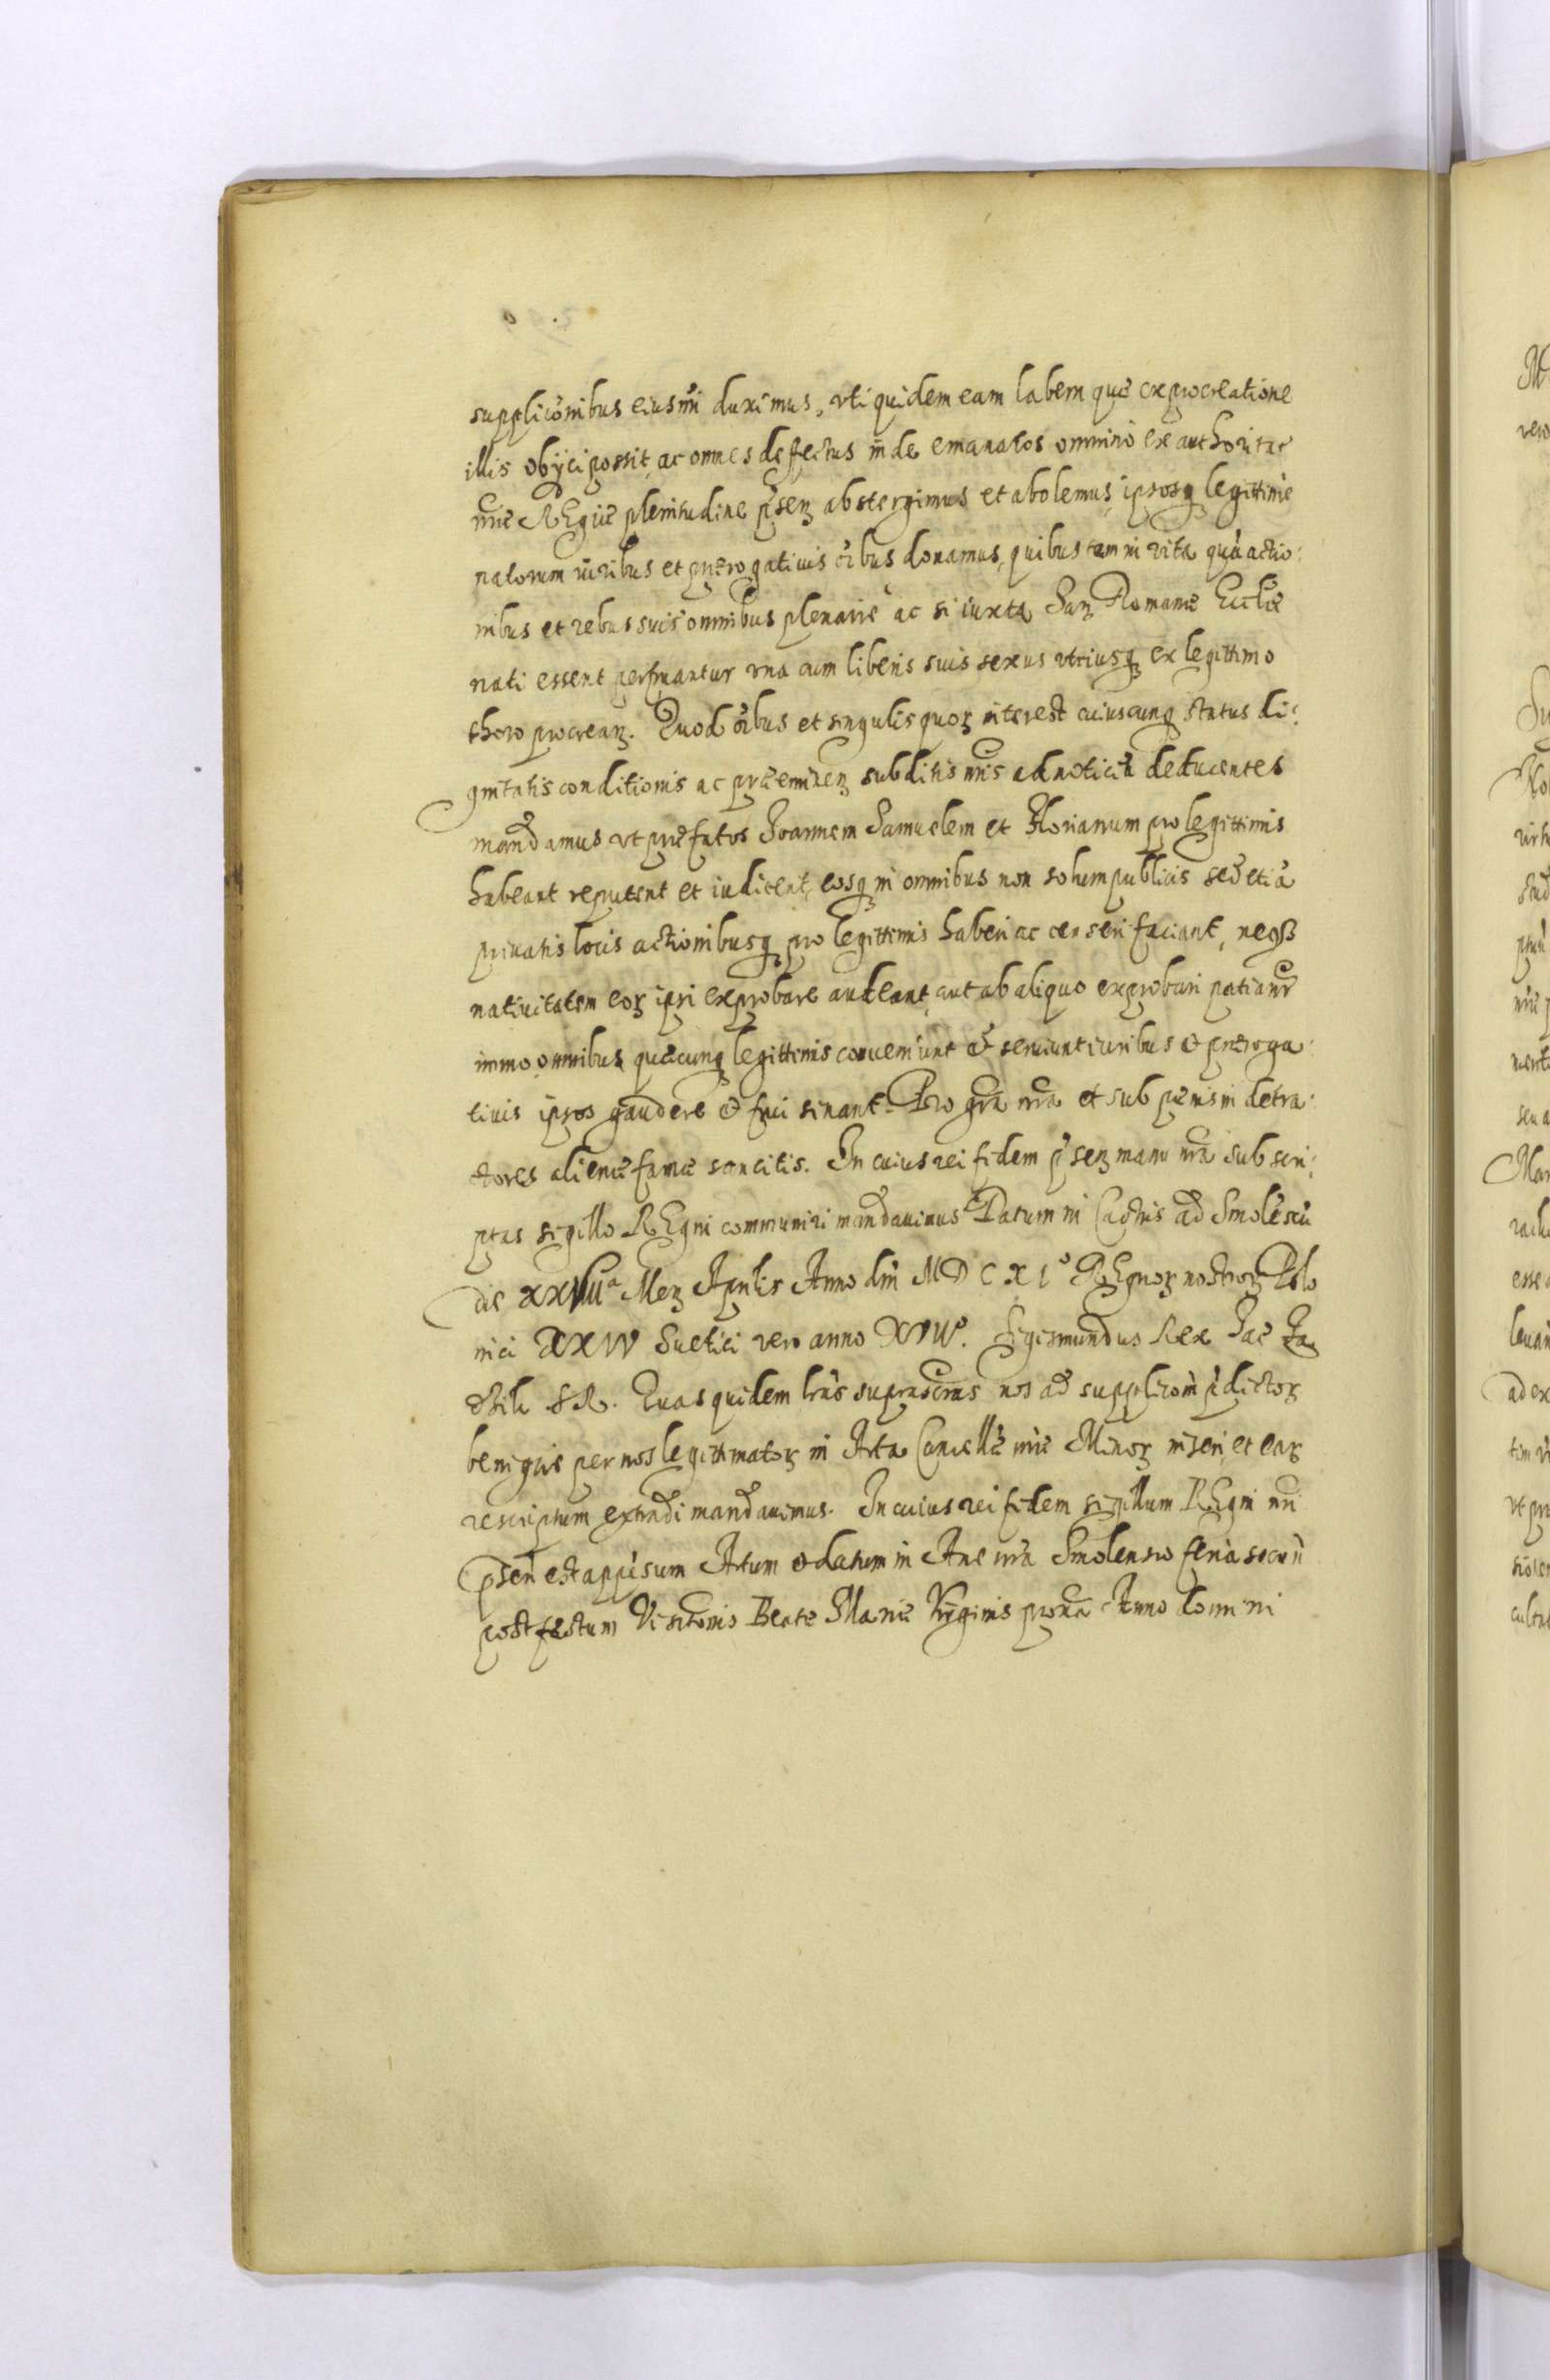 supplicõnibus eiusm̃i duximus, vti quidem eam labem quæ ex procreatione
illis obijci possit, ac omnes deffectus inde emanatos omnino ex authoritat
nrẽ REgiæ plenitudine p̃señ abstergimus et abolemus, ipsosq legittime
natorum iuribus et prærogatiuis õibus donamus, quibus tam in vita quã actio:
nibus et rebus suis omnibus plenarie ac si iuxta San Romanæ Eccliæ
nati essent perfruantur vna cum liberis suis sexus vtriusq ex legittimo
thoro procreaꝫ. Quod õibus et singulis quoꝝ interest cuiuscunq status di:
gnitatis conditionis ac præeminenꝫ subditis nr̃is ad noticiã deducentes
mandamus vt præfatos Joannem Samuelem et Florianum pro legittimis
habeant reputent et iudicent, eosq in omnibus non solum publicis sed etiã
priuatis locis actionibusq pro legittimis haberi ac censeri faciant, neqз
natiuitatem eoꝝ ipsi exprobare audeant, aut ab aliquo exprobari patianr̃
immo omnibus quæcunq legittimis conueniunt et seruiunt iuribus et præroga:
tiuis ipsos gaudere et frui sinant. Pro gr̃a nr̃a et sub pænis in detra:
ctores alienæ famæ sancitis. In cuius rei fidem p̃senꝫ manu nr̃a subscri:
ptas sigillo REgni communiri mandauimus Datum in Castris ad Smolẽscũ
die XXVIIa Menꝫ Aprilis Anno dñi MDCXIo REgnoꝝ nostroꝝ Polo
nici XXIV Suetici vero anno XVIIo. Sigismundus Rex Jac
SR. Quas quidem lrãs suprascrãs nos ad supplicõm p̃dictoꝝ
benigne per nos legittimatoꝝ in Acta Cancellæ nr̃æ Minoꝝ inseri, et eaꝝ
rescriptum extradi mandauimus. In cuius rei fidem sigillum REgni nr̃i
p̃senꝫ est appẽsum Actum et datum in Arce nr̃a Smolensco feria secun
post festum Visitõnis Beatæ Mariæ Virginis proxa Anno domini